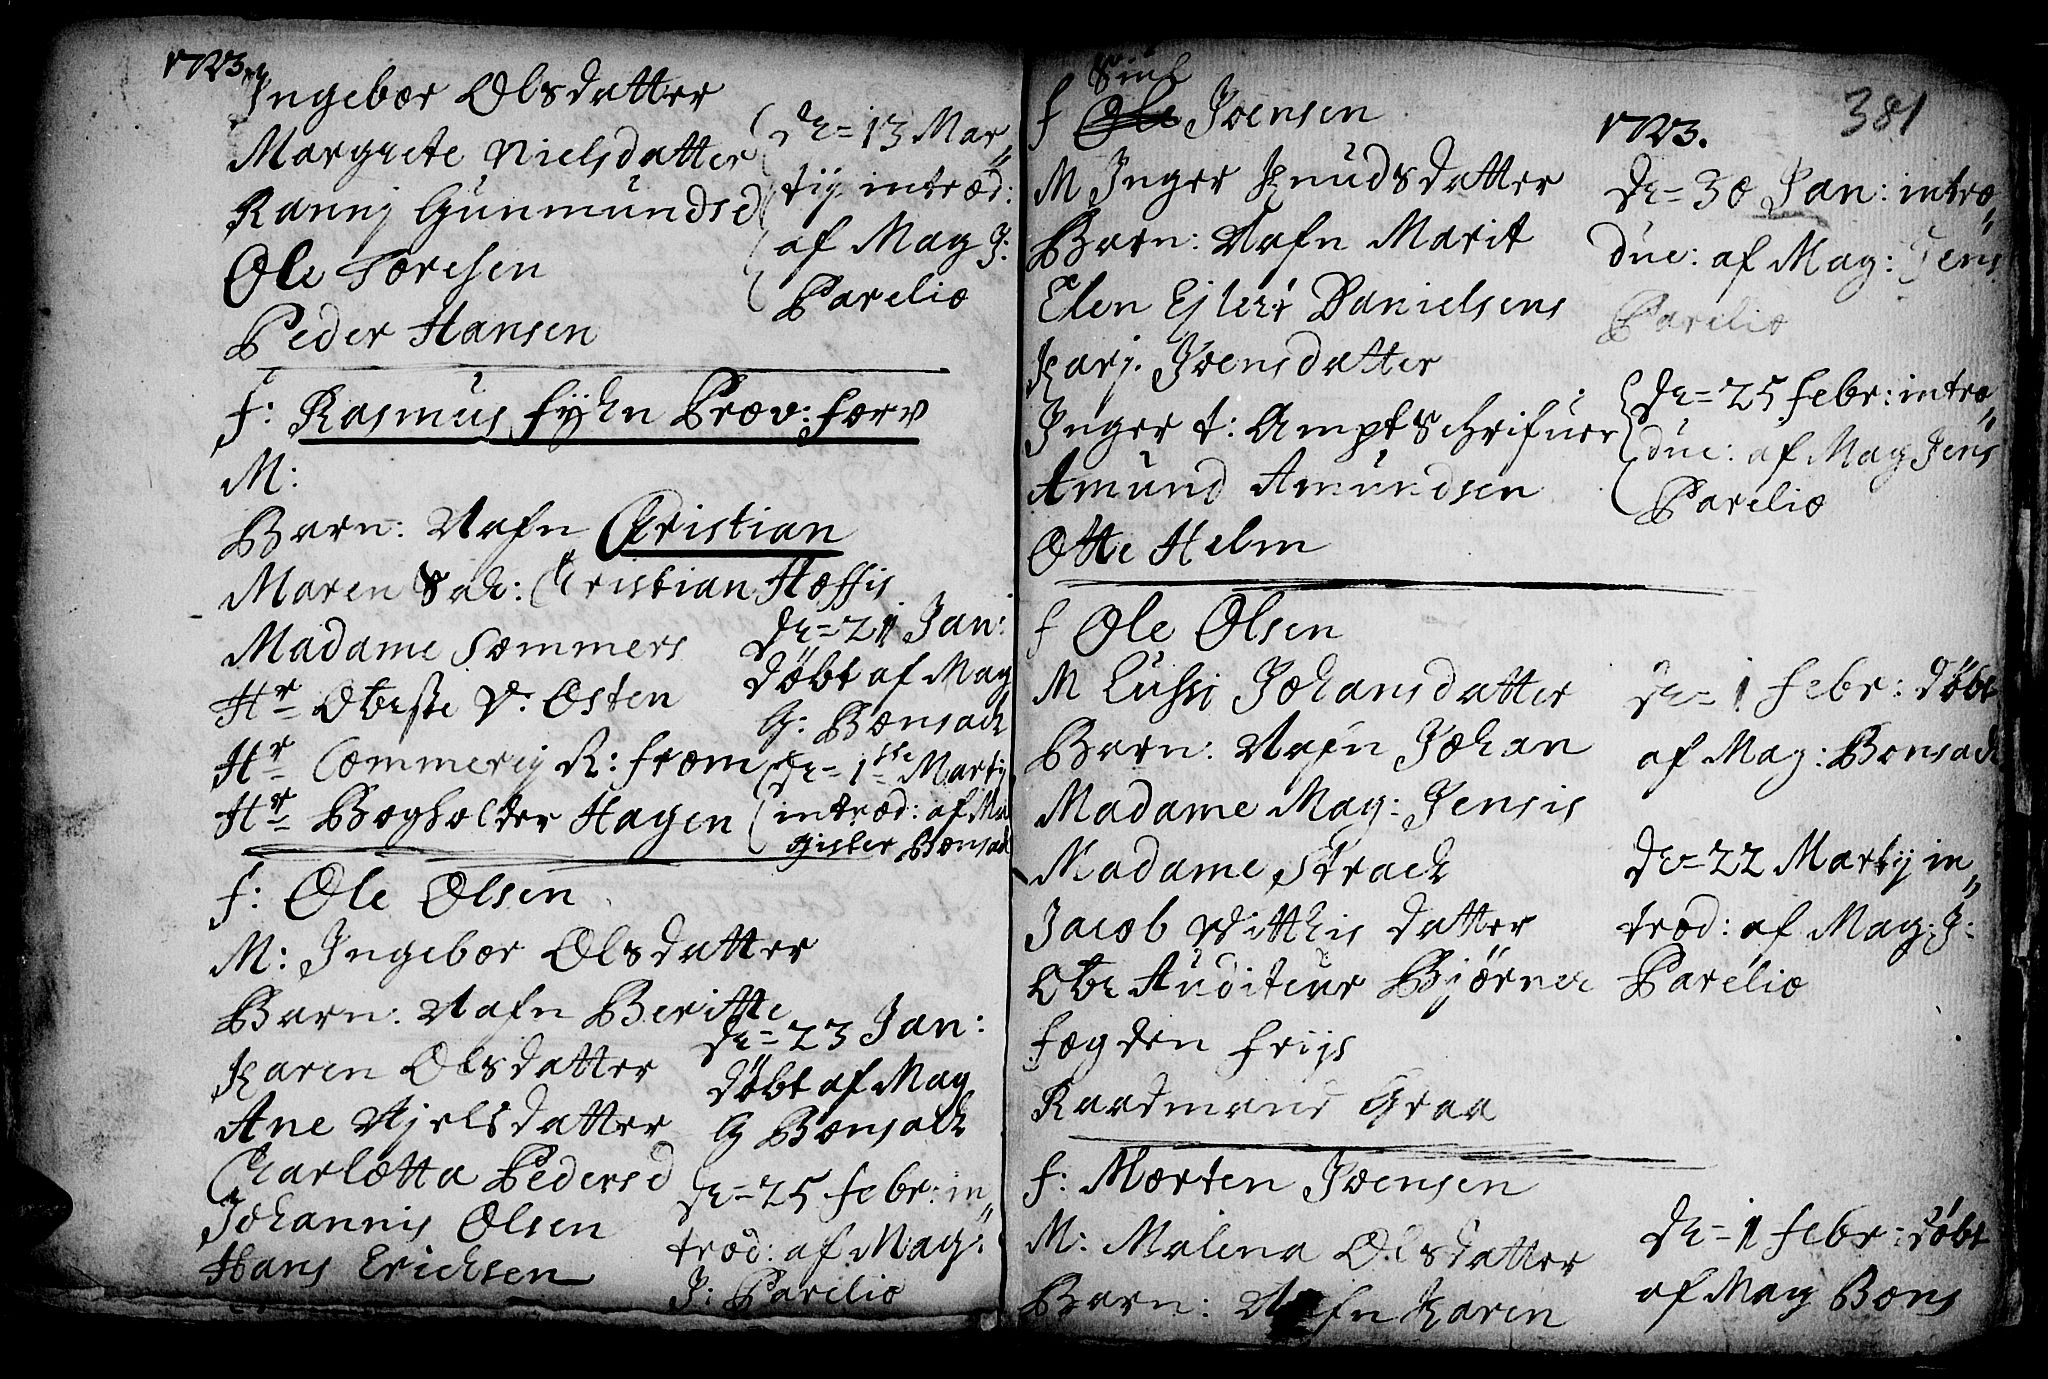 1723.
Ingebor Olsdatter
Margrete Nielsdatter
Ranni Gunmundsd
Ole Toresen
Peder Hansen
de = 13 Mar„
tij introd:
af Mag J:
Parelio
F: Rasmus Fyhn Prov: forv
M:
Barn: Nafn Christian
Maren Sal: Christian Hoffis
Madame Sommers
Hr Obrste v. Osten
Hr Commerij R: From
Hr Bogholder Hagen
de = 21 Jan:
døbt af Mag
G: Bonsach
de = 1ste Martij
introd: af Ma
gister Bonsach
F: Ole Olsen
M: Ingebor Olsdatter
Barn: Nafn Beritte
Karen Olsdatter
Ane Njelsdatter
Charlotta Pedersd
Johannis Olsen
Hans Erichsen
de = 23 Jan:
døbt af Mag
G Bonsach
de = 25 Febr: in„
trod: af Mag:
J: Parelio
381
1723.
Siul
F Ole Joensen
M Inger Knudsdatter
Barn: Nafn Marit
Elen Ejlert Danielsens
Karj. Joensdatter
Inger t: Amptschrifuer
Amund Amundsen
Otte Helm
de = 30 Jan: intro„
duc: af Mag: Jens
Parelio
de = 25 Febr: intro„
duc: af Mag Jens
Parelio
F Ole Olsen
M Lussi Johansdatter
Barn: Nafn Johan
Madame Mag: Jensis
Madame Strach
Jacob Witthis datter
Obr Auditeur Bjørner
Fogden Friis
Raadmand Graa
de = 1 Febr: døbt
af Mag: Bonsach
de = 22 Martij in„
trod: af Mag: J:
Parelio
F: Morten Joensen
M: Malena Olsdatter
Barn: Nafn Karen
de = 1 Febr: døbt
af Mag Bons